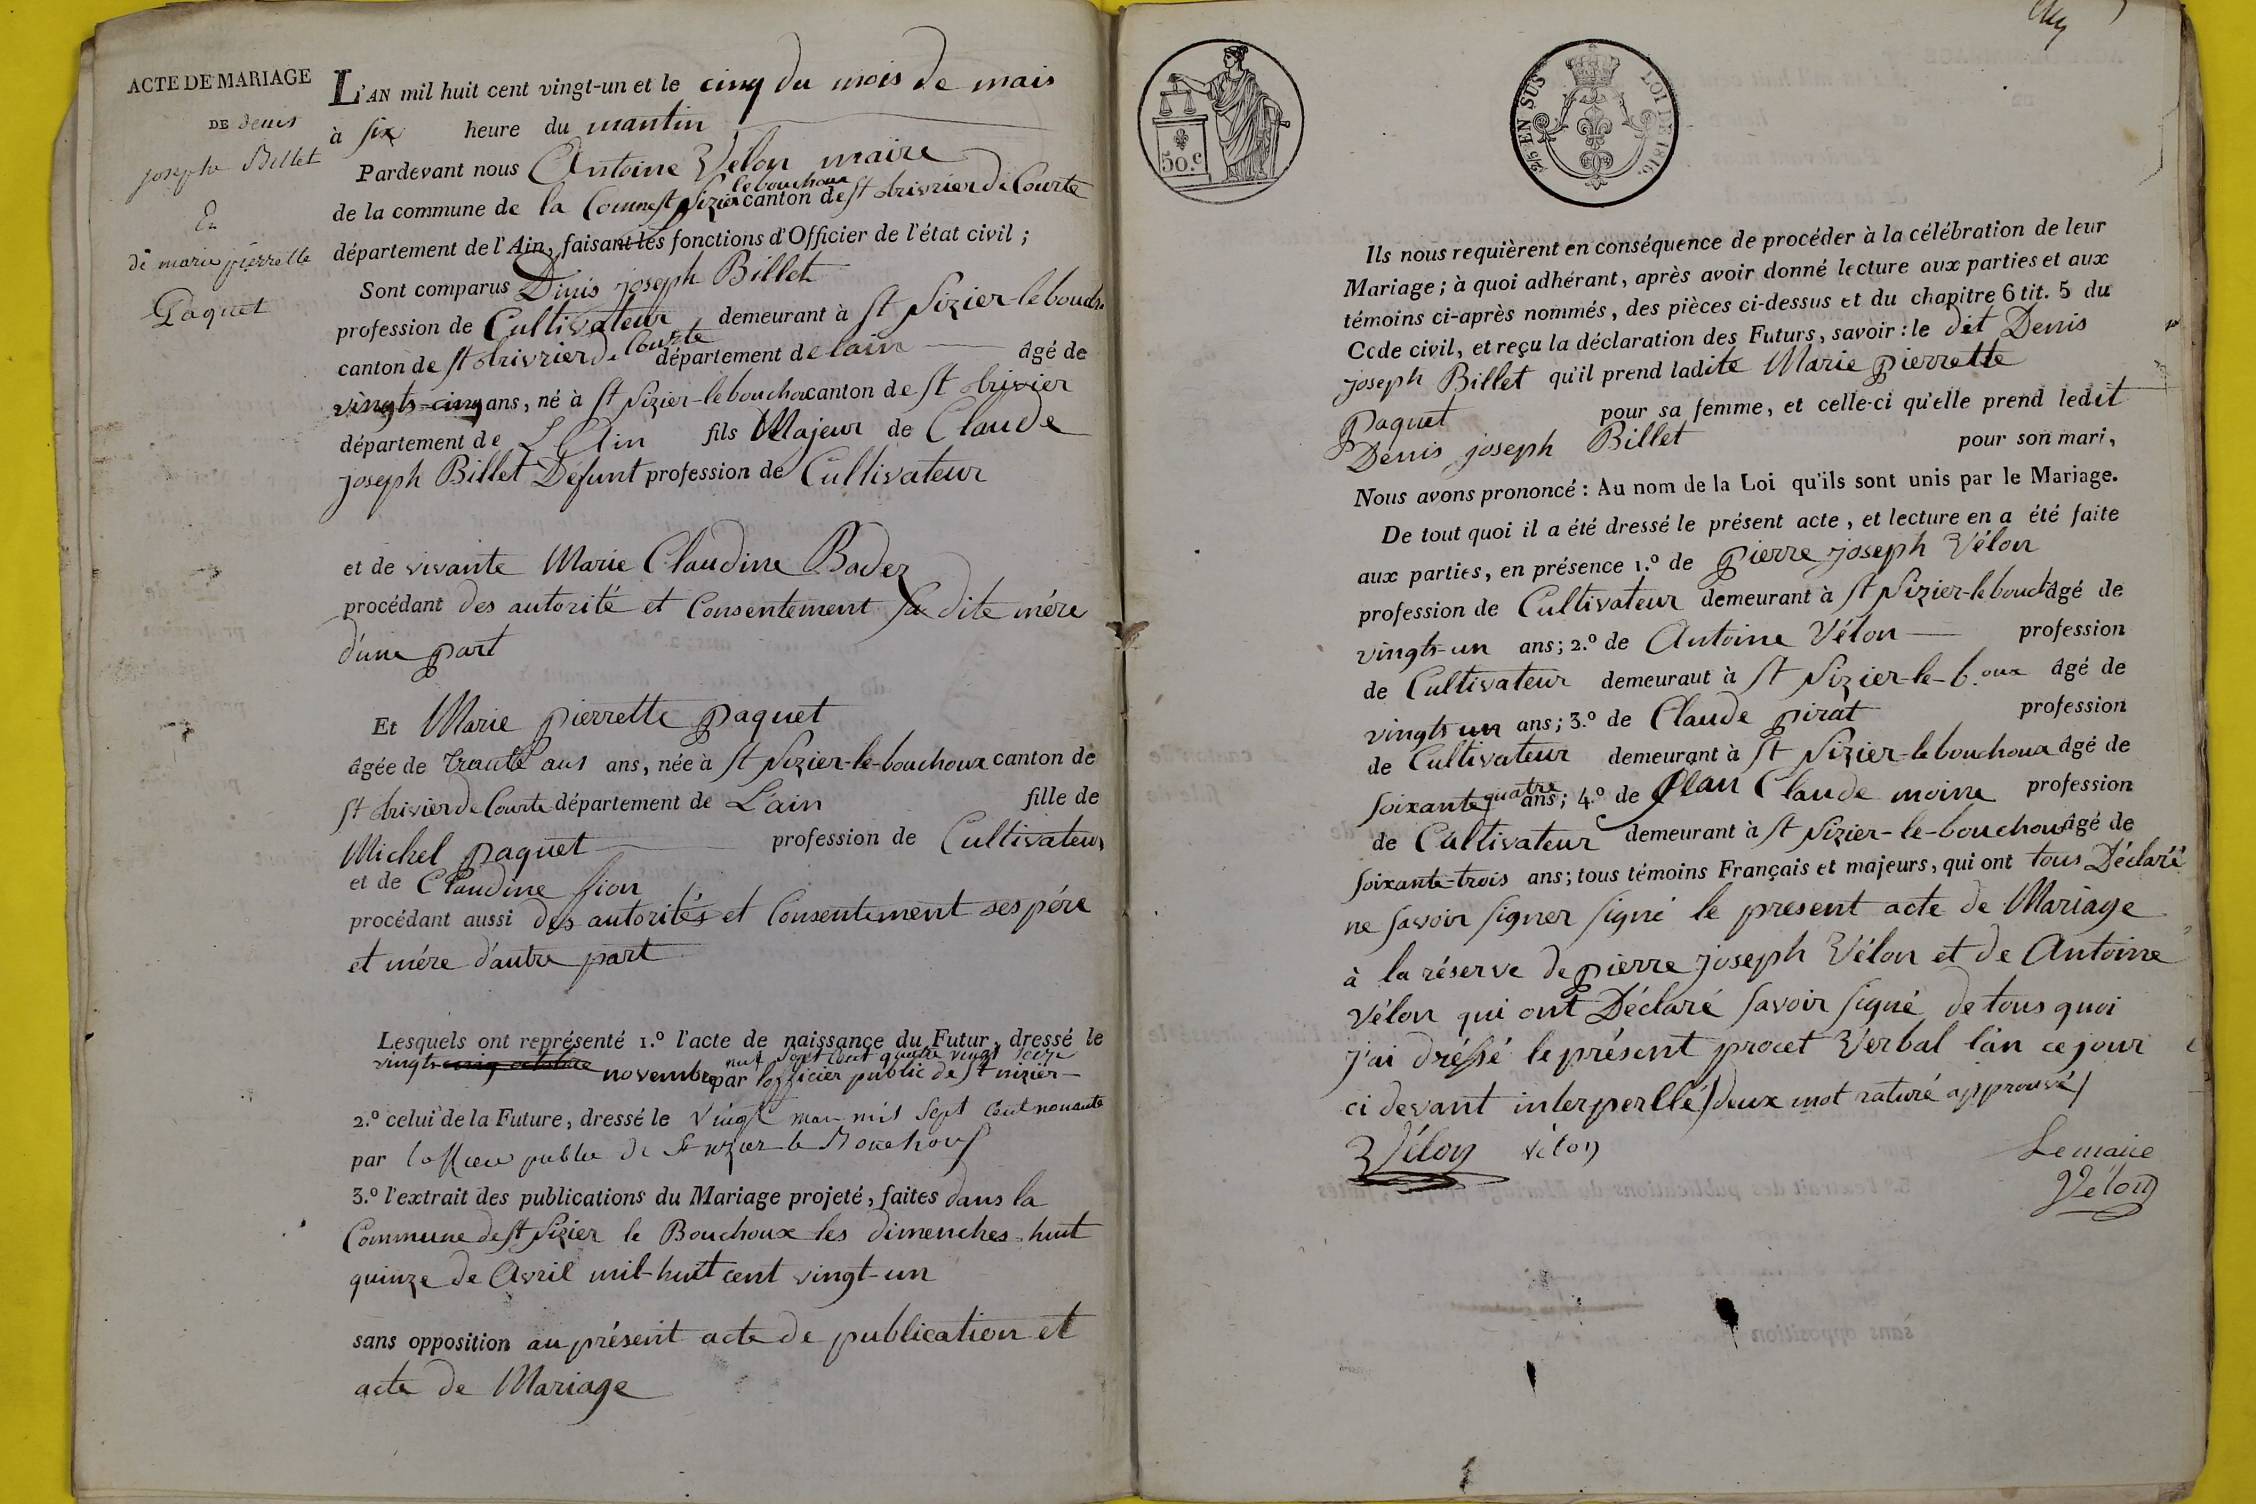 ACTE DE MARIAGE
DE denis
joseph Billet
Et
de marie pierrette
Paquet
L'AN mil huit cent vingt-un et le cinq du mois de mais
à six heure du mantin
Pardevant nous Antoine Vélon maire
le bouchoux
de la commune de la Comne st Nizier canton de st trivrier de Courte
département de l'Ain, faisant les fonctions d'Officier de l'état civil ;
Sont comparus Dinis joseph Billet
profession de Cultivateur, demeurant à st Nizier-le bouch
canton de st trivrier de Courte département de lain âgé de
vingts-cinq ans, né à st Nizier-le bouchou canton de st trivier
département de L'Ain fils Majeur de Claude
joseph Billet Défunt profession de Cultivateur
et de vivante Marie Claudine Badez
procédant des autorité et Consentement sa dite mére
d'une part
Et Marie pierrette paquet
âgée de trante ans ans, née à st Nizier-le-bouchoux canton de
st trivier de Courte département de L'ain fille de
Michel paquet profession de Cultivateur
et de Claudine fion
procédant aussi des autorités et Consentement ses pére
et mére d'autre part
Lesquels ont représenté 1.º l'acte de naissance du Futur, dressé le
mil sept cent quatre vingt seize
vingts cinq octobre novembre par l'officier public de st nizier
2.º celui de la Future, dressé le vingt mars mil sept cent nonante
par l'officier public de St nizier le Bouchoux
3.º l'extrait des publications du Mariage projeté, faites dans la
Commune de st Nizier le Bouchoux les dimenches huit
quinze de Avril mil-huit cent vingt-un
sans opposition au présent acte de publication et
acte de Mariage
50.c
2/5 EN SUS
LOI DE 1816.
Ils nous requièrent en conséquence de procéder à la célébration de leur
Mariage ; à quoi adhérant, après avoir donné lecture aux parties et aux
témoins ci-après nommés, des pièces ci-dessus et du chapitre 6 tit. 5 du
Code civil, et reçu la déclaration des Futurs, savoir : le dit Denis
joseph Billet qu'il prend ladite Marie pierrette
paquet pour sa femme, et celle-ci qu'elle prend ledit
Denis joseph Billet pour son mari,
Nous avons prononcé : Au nom de la Loi qu'ils sont unis par le Mariage.
De tout quoi il a été dressé le présent acte, et lecture en a été faite
aux parties, en présence 1.º de pierre joseph Vélon
profession de Cultivateur demeurant à st Nizier-le bouch âgé de
vingts-un ans ; 2.º de Antoine Vélon profession
de Cultivateur demeuraut à st Nizier-le-b.oux âgé de
vingts un ans ; 3.º de Claude pirat profession
de Cultivateur demeurant à st Nizier-le bouchoux âgé de
soixante quatre ans ; 4.º de Jean Claude moine profession
de Cultivateur demeurant à st Nizier-le-bouchoux âgé de
soixante-trois ans ; tous témoins Français et majeurs, qui ont tous Déclaré
ne savoir signer signé le present acte de Mariage
à la réserve de pierre joseph Vélon et de Antoine
Vélon qui ont Déclaré savoir signé de tous quoi
j'ai dréssé le présent procet Verbal l'an ce jour
ci devant interpellé / deux mot raturé approuvé /
Vélon vélon
Le maire
Vélon